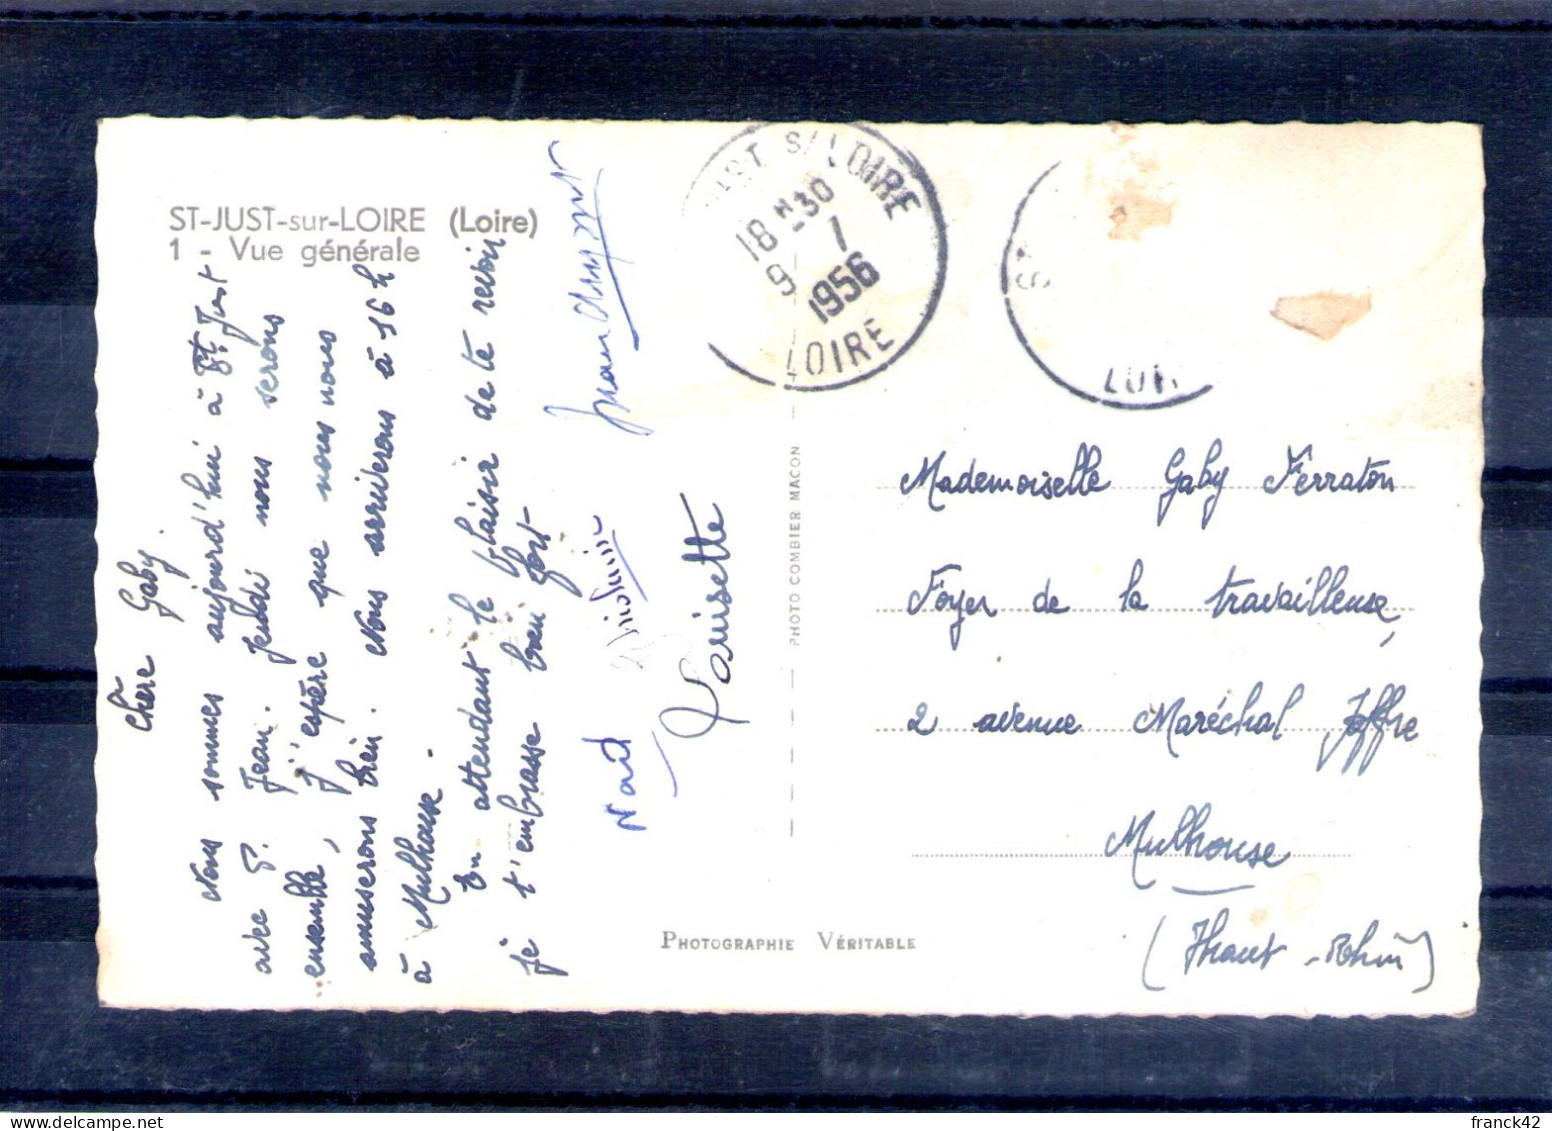 ST-JUST-sur-LOIRE (Loire)
1 - Vue générale
Chère Gaby.
Nous sommes aujourd'hui à St Just
avec P. Jean. Jeudi nous serons
ensemble, j'espère que nous nous
amuserons bien. Nous arriverons à 16 h
à Mulhouse.
En attendant le plaisir de te revoir
je t'embrasse bien fort
Noid
Louisette
ST S/LOIRE
18 H 30
9 - 1
1956
LOIRE
ST
LOI
PHOTO COMBIER MACON
PHOTOGRAPHIE VÉRITABLE
Mademoiselle Gaby Ferraton
Foyer de la travailleuse,
2 avenue Maréchal Joffre
Mulhouse
(Haut-Rhin)
franck42